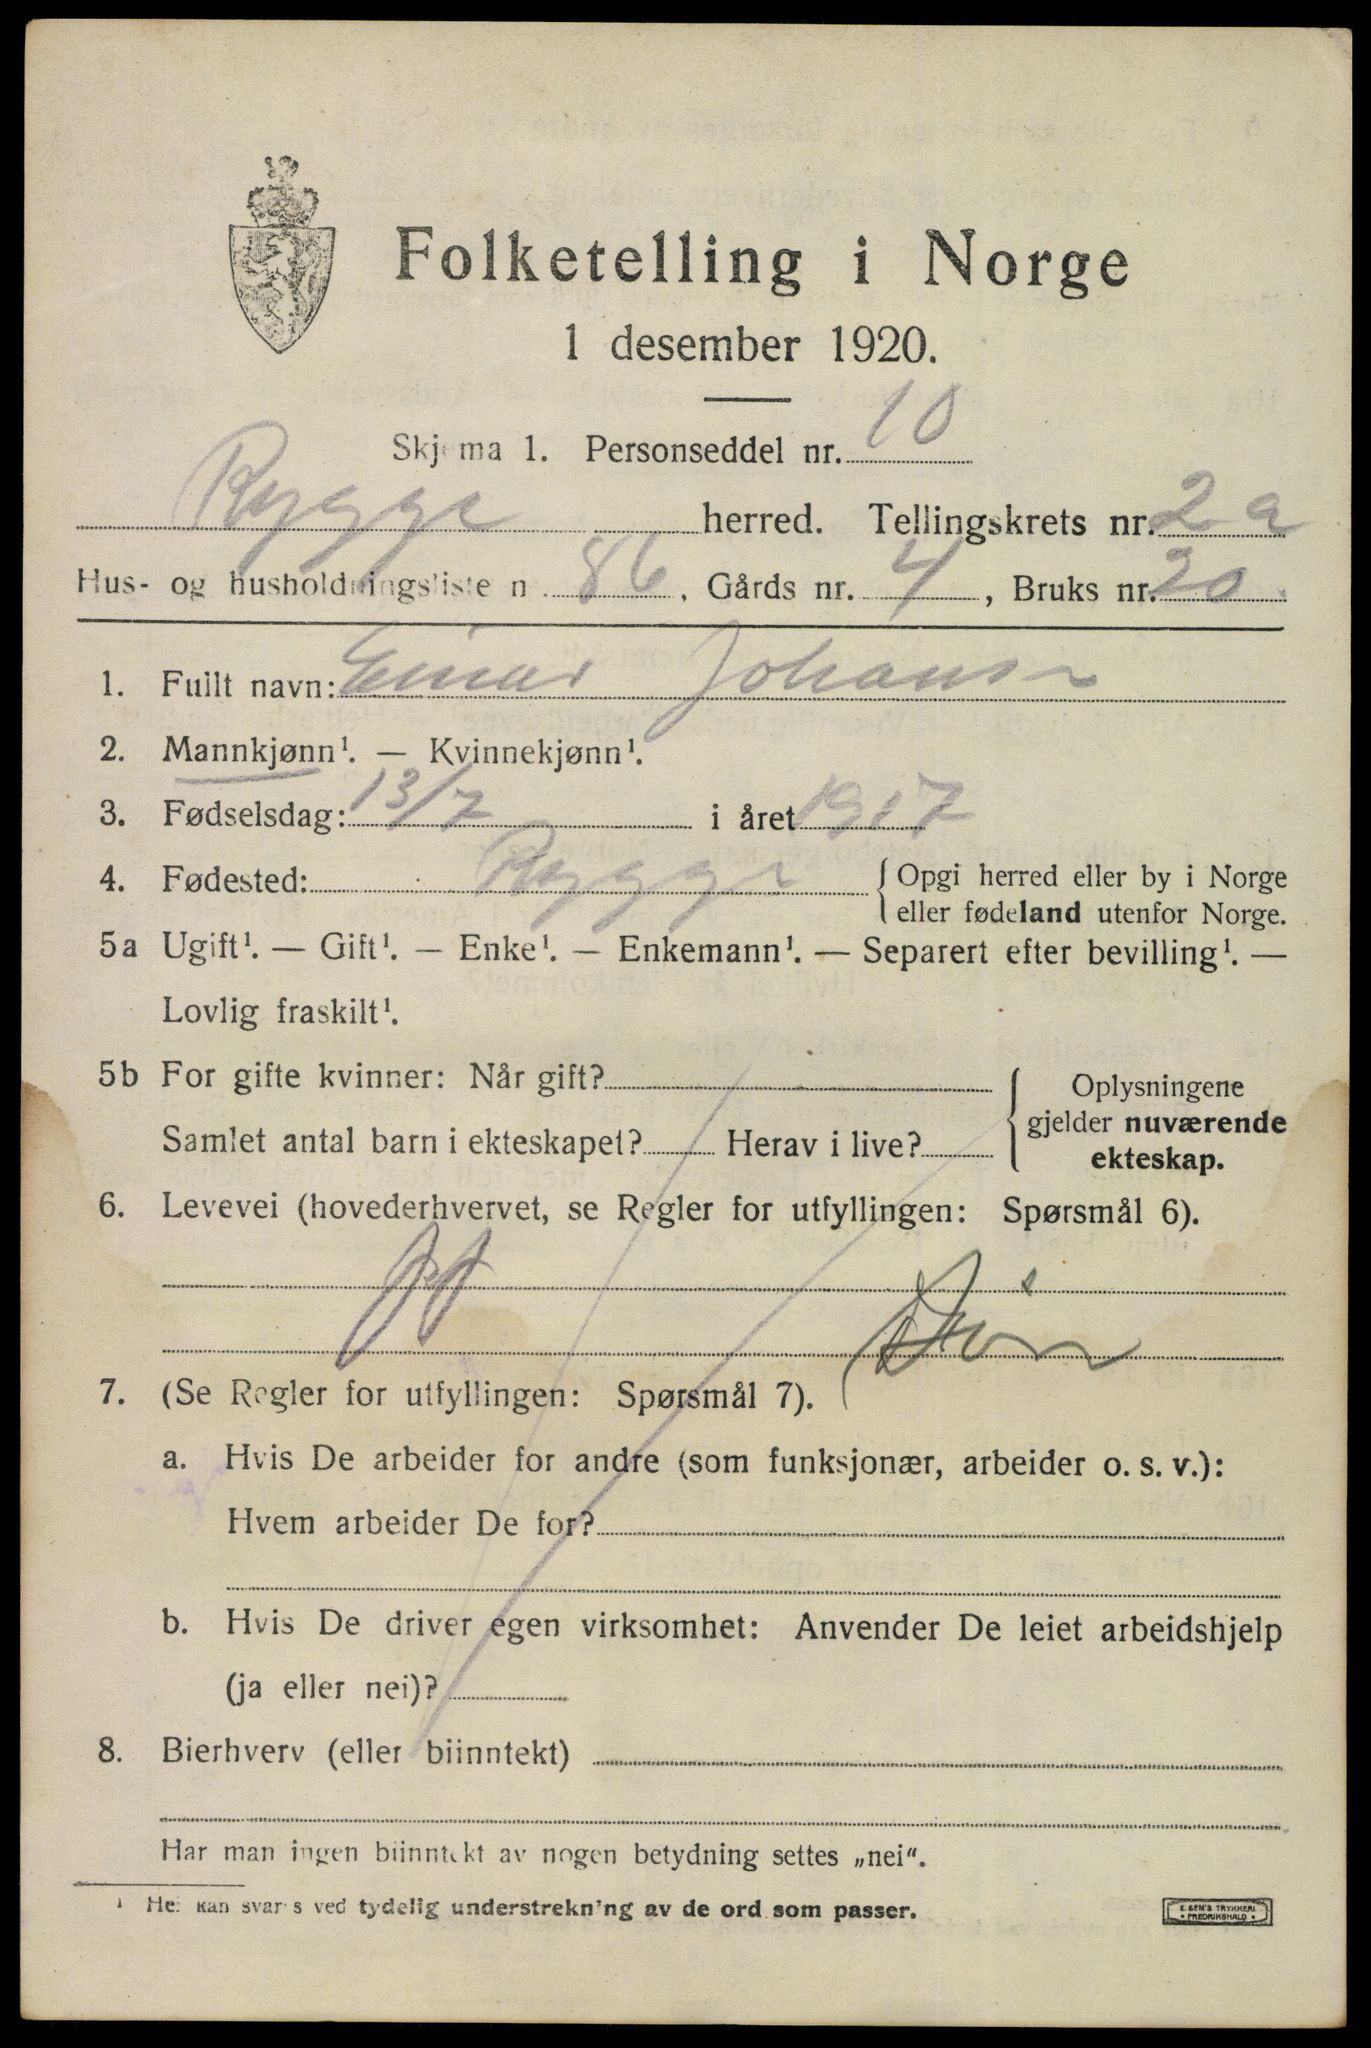 Folketelling i Norge
1 desember 1920.
Skjema 1. Personseddel nr. 10
Rygge herred. Tellingskrets nr. 2 a
Hus- og husholdningsliste n . 86, Gårds nr. 4, Bruks nr. 20.
1. Fullt navn: Einar Johansn
2. Mannkjønn¹. — Kvinnekjønn¹.
3. Fødselsdag: 13/7 i året 1917
4. Fødested: Rygge { Opgi herred eller by i Norge
eller fødeland utenfor Norge.
5a Ugift¹. — Gift¹. — Enke¹. — Enkemann¹. — Separert efter bevilling¹. —
Lovlig fraskilt¹.
5b For gifte kvinner: Når gift?
Samlet antal barn i ekteskapet? Herav i live?
{ Oplysningene
gjelder nuværende
ekteskap.
6. Levevei (hovederhvervet, se Regler for utfyllingen: Spørsmål 6).
7. (Se Regler for utfyllingen: Spørsmål 7).
a. Hvis De arbeider for andre (som funksjonær, arbeider o. s. v.):
Hvem arbeider De for?
b. Hvis De driver egen virksomhet: Anvender De leiet arbeidshjelp
(ja eller nei)?
8. Bierhverv (eller biinntekt)
Har man ingen biinntekt av nogen betydning settes „nei“.
¹ Her kan svares ved tydelig understrekn'ng av de ord som passer.
E. SEM'S TRYKKERI
• FREDRIKSHALD •